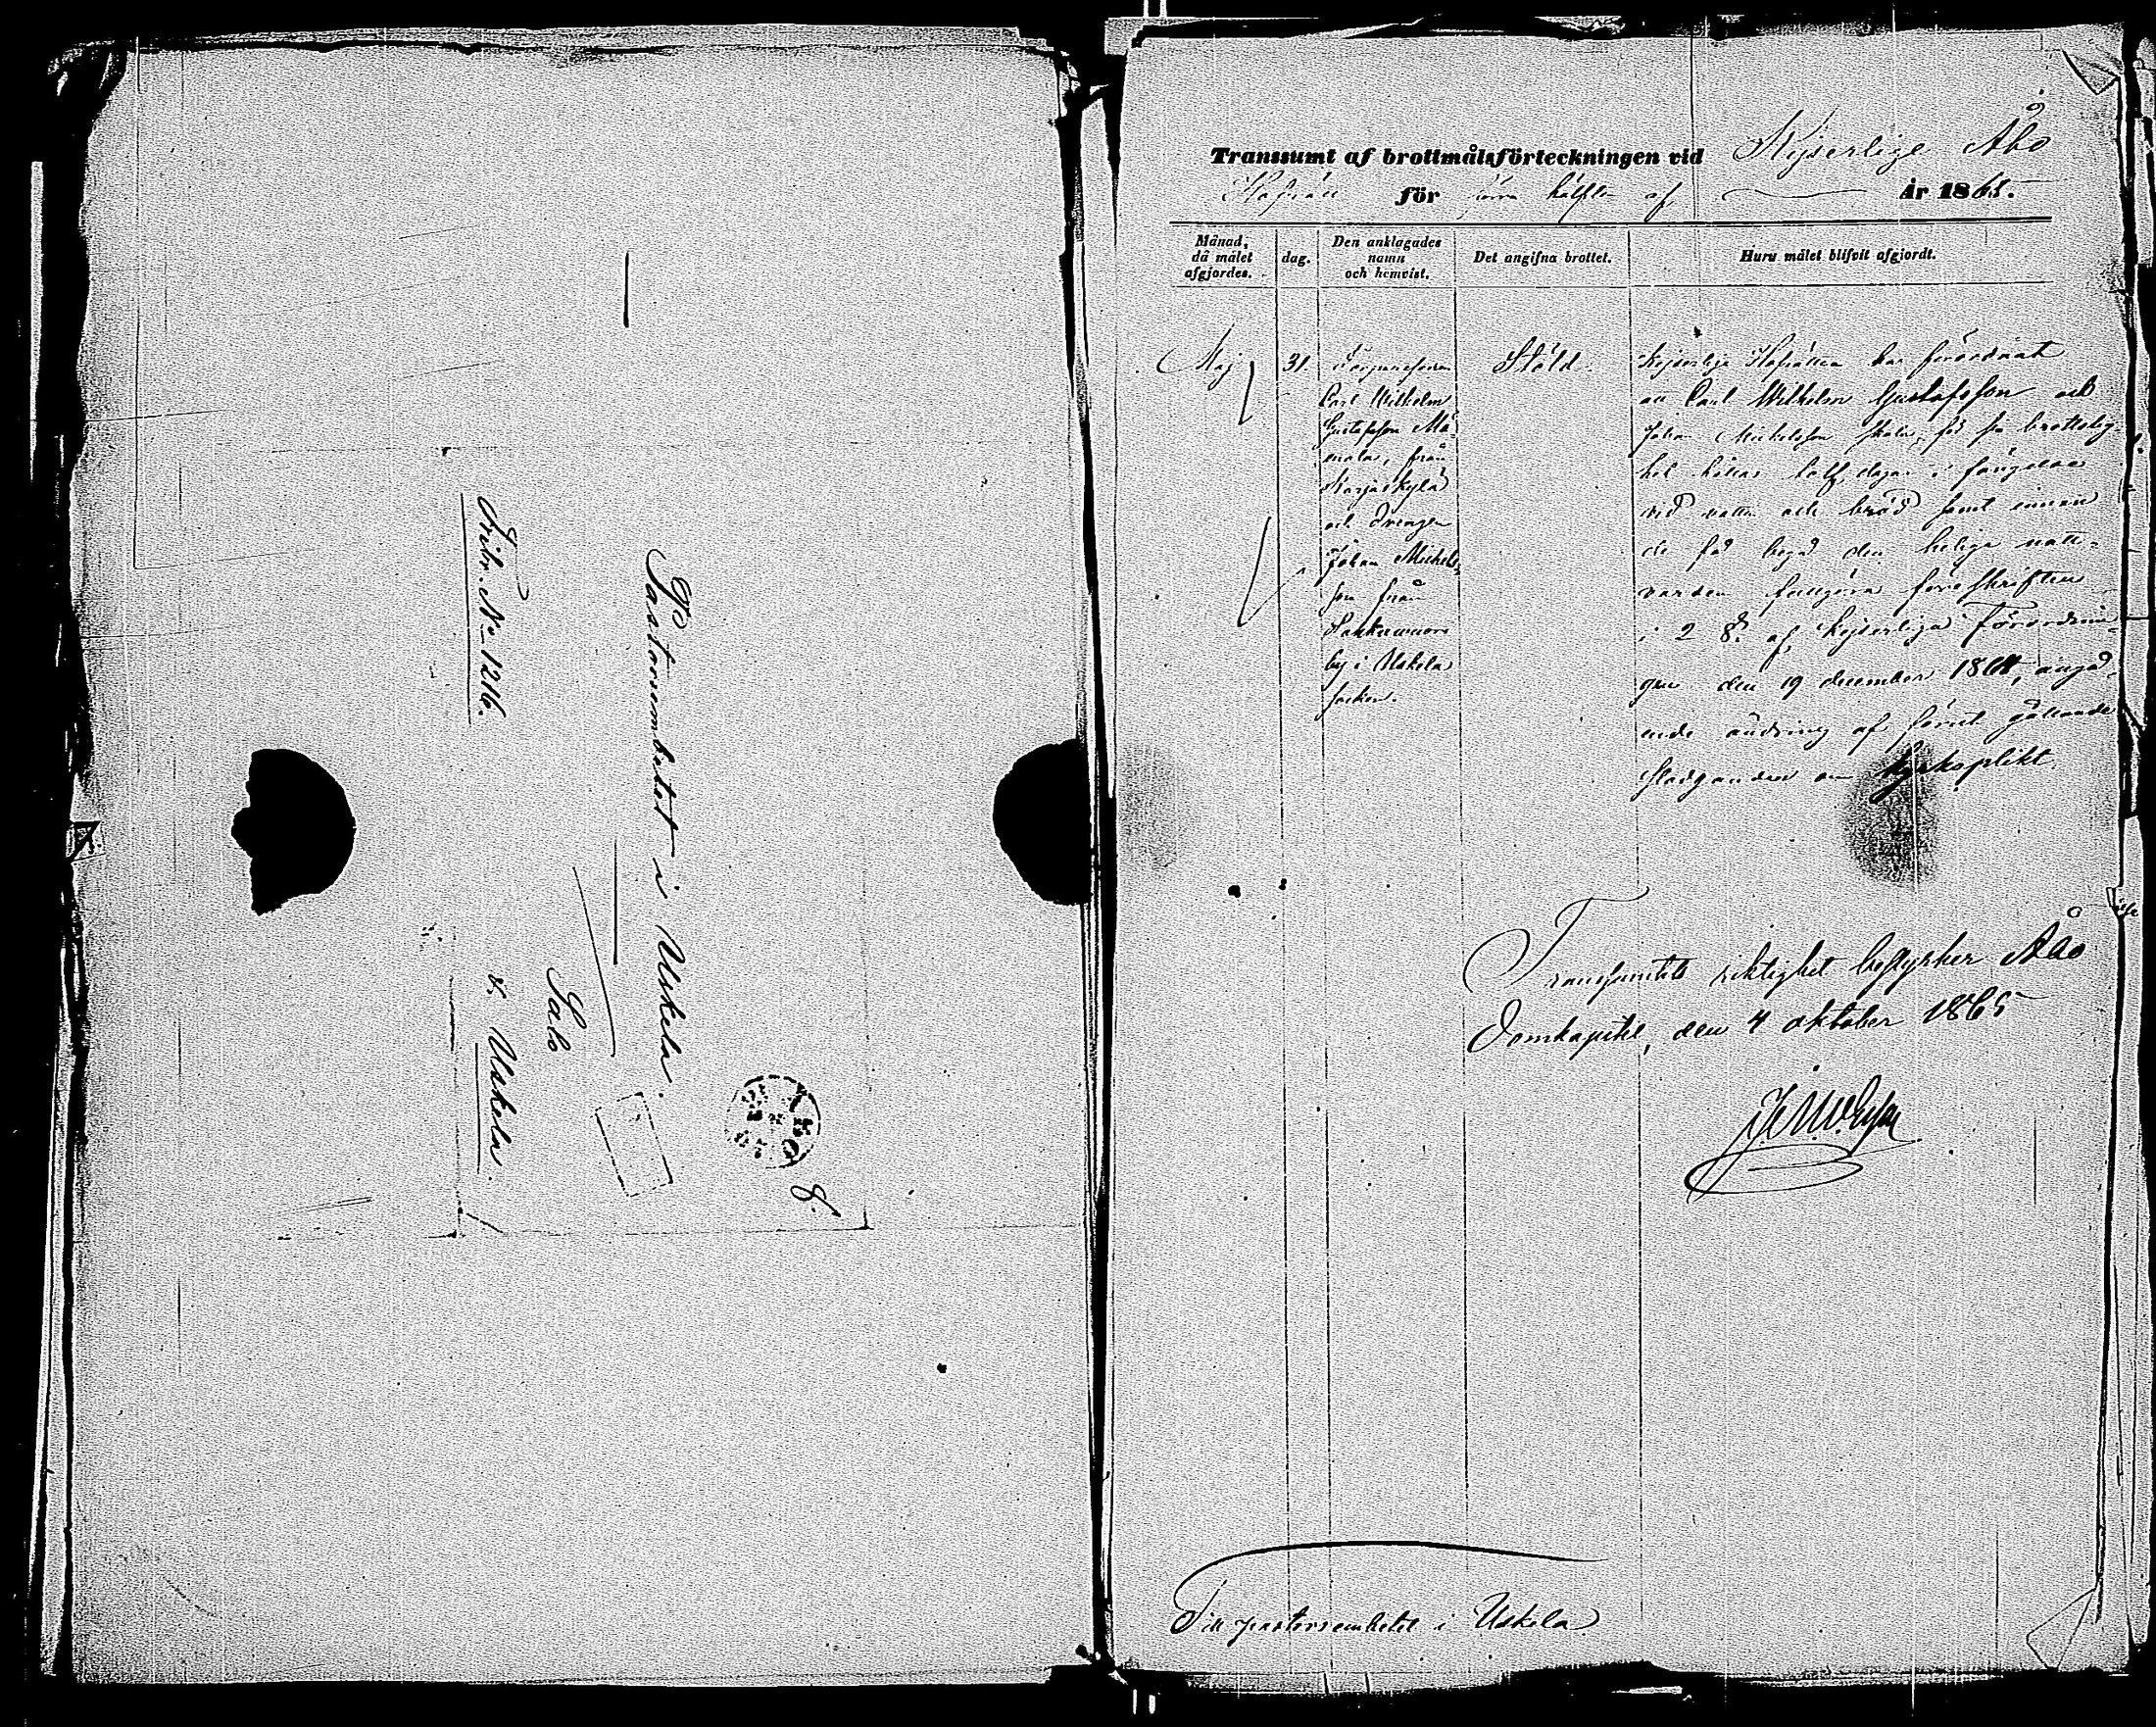 Pastorsembetet i Uskela.
Salo
& Uskela.
Fribr. No 1216.
Transsumt af brottmålsförteckningen vid Kejserlige Åbo
Hofrätt för förra hälften af År 1865.
Månad,
då målet
afgjordes.
dag.
Den anklagades
namn
och hemvist.
Det angifna brottet.
Huru målet blifvit afgjordt.
Maj
31.
Carl Wilhelm
Gustafsson Mä-
mälä, från
Karjaskylä
och drengen
Johan Michels-
son från
by i Uskela
socken.
Stöld.
Kejserliga Hofrätten har förordnat
att Carl Wilhelm Gustafsson och
Johan Michelsson skola, för sin brottslig-
het hållas tolf dagar i fängelse
vid vatten och bröd samt innan
de få begå den heliga natt-
varden fullgöra föreskriften
i 2 §. af Kejserliga Förordnin-
gen den 19 december 1864, angå-
ende ändring af förut gällande
stadganden om kyrkoplikt.
Transsumtets riktighet bestyrker Åbo
Domkapitel, den 4 oktober 1865
Till pastorsembetet i Uskela